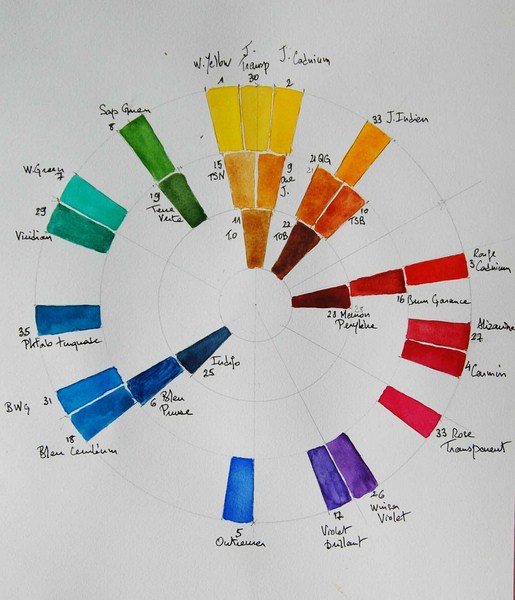 W. Yellow
1
J.
Transp
30
J. Cadmium
2
Sap Green
8
33 J. Indien
15
TSN
9
J.
21 QG
21
10
TSB
W. Green
7
19
Terre
Verte
11
T.O
22
TOB
29
Viridian
Rouge
Cadmium
3
16 Brun Garance
28
Pérylène
35
Phtalo turquoise
Alizarine
27
4 Carmin
Indigo
25
BWG
31
6 Bleu
Prusse
18
Bleu Cæruleum
33 Rose
Transparent
26
Winsor
Violet
17
Violet
brillant
5
Outremer